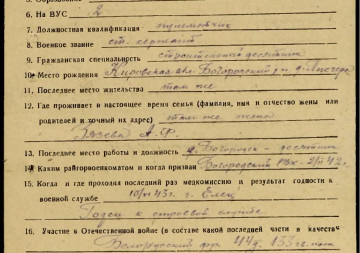 6. На ВУС 2
7. Должностная квалификация пулеметчик
8. Военное звание ст. сержант
9. Гражданская специальность строительный десятник
10. Место рождения Кировская обл. Богородский р-н д.
11. Последнее место жительства там же
12. Где проживает в настоящее время семья (фамилия, имя и отчество жены или
родителей и точный их адрес) там же жена
А. Ф.
13. Последнее место работы и должность Богородск - десятник
14. Каким райгорвоенкоматом и когда призван Богородский РВК - 42 г.
15. Когда и где проходил последний раз медкомиссию и результат годности к
военной службе 10/VI 43 г. г. Елец
Годен к строевой службе
16. Участие в Отечественной войне (в составе какой последней части в качестве
Белорусский фр.